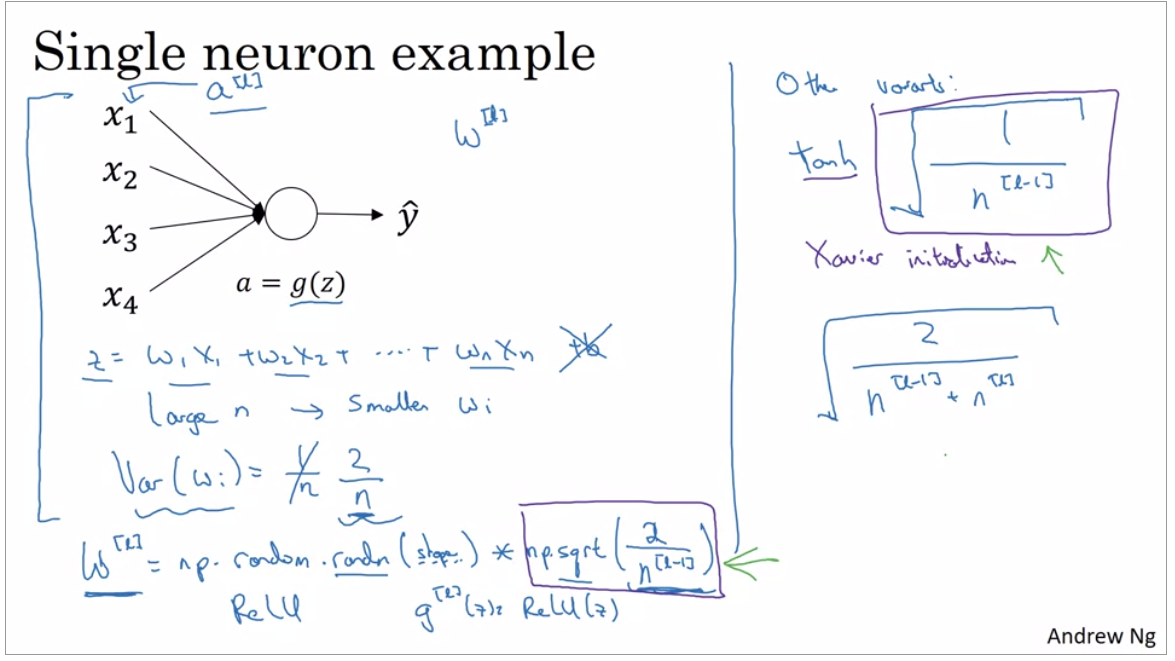 Single neuron example
a^[l]
x₁
x₂
x₃
x₄
W^[l]
ŷ
a = g(z)
z = w₁x₁ + w₂x₂ + ⋯ + wₙxₙ +b
Large n → Smaller wᵢ
Var(wᵢ) = 1/n 2/n
W^[l] = np.random.randn(shape) * np.sqrt(2/n^[l-1])
ReLU g^[l](z) = ReLU(z)
Other variants:
tanh √(1/n^[l-1])
Xavier initialization ↑
√(2/(n^[l-1] + n^[l]))
Andrew Ng